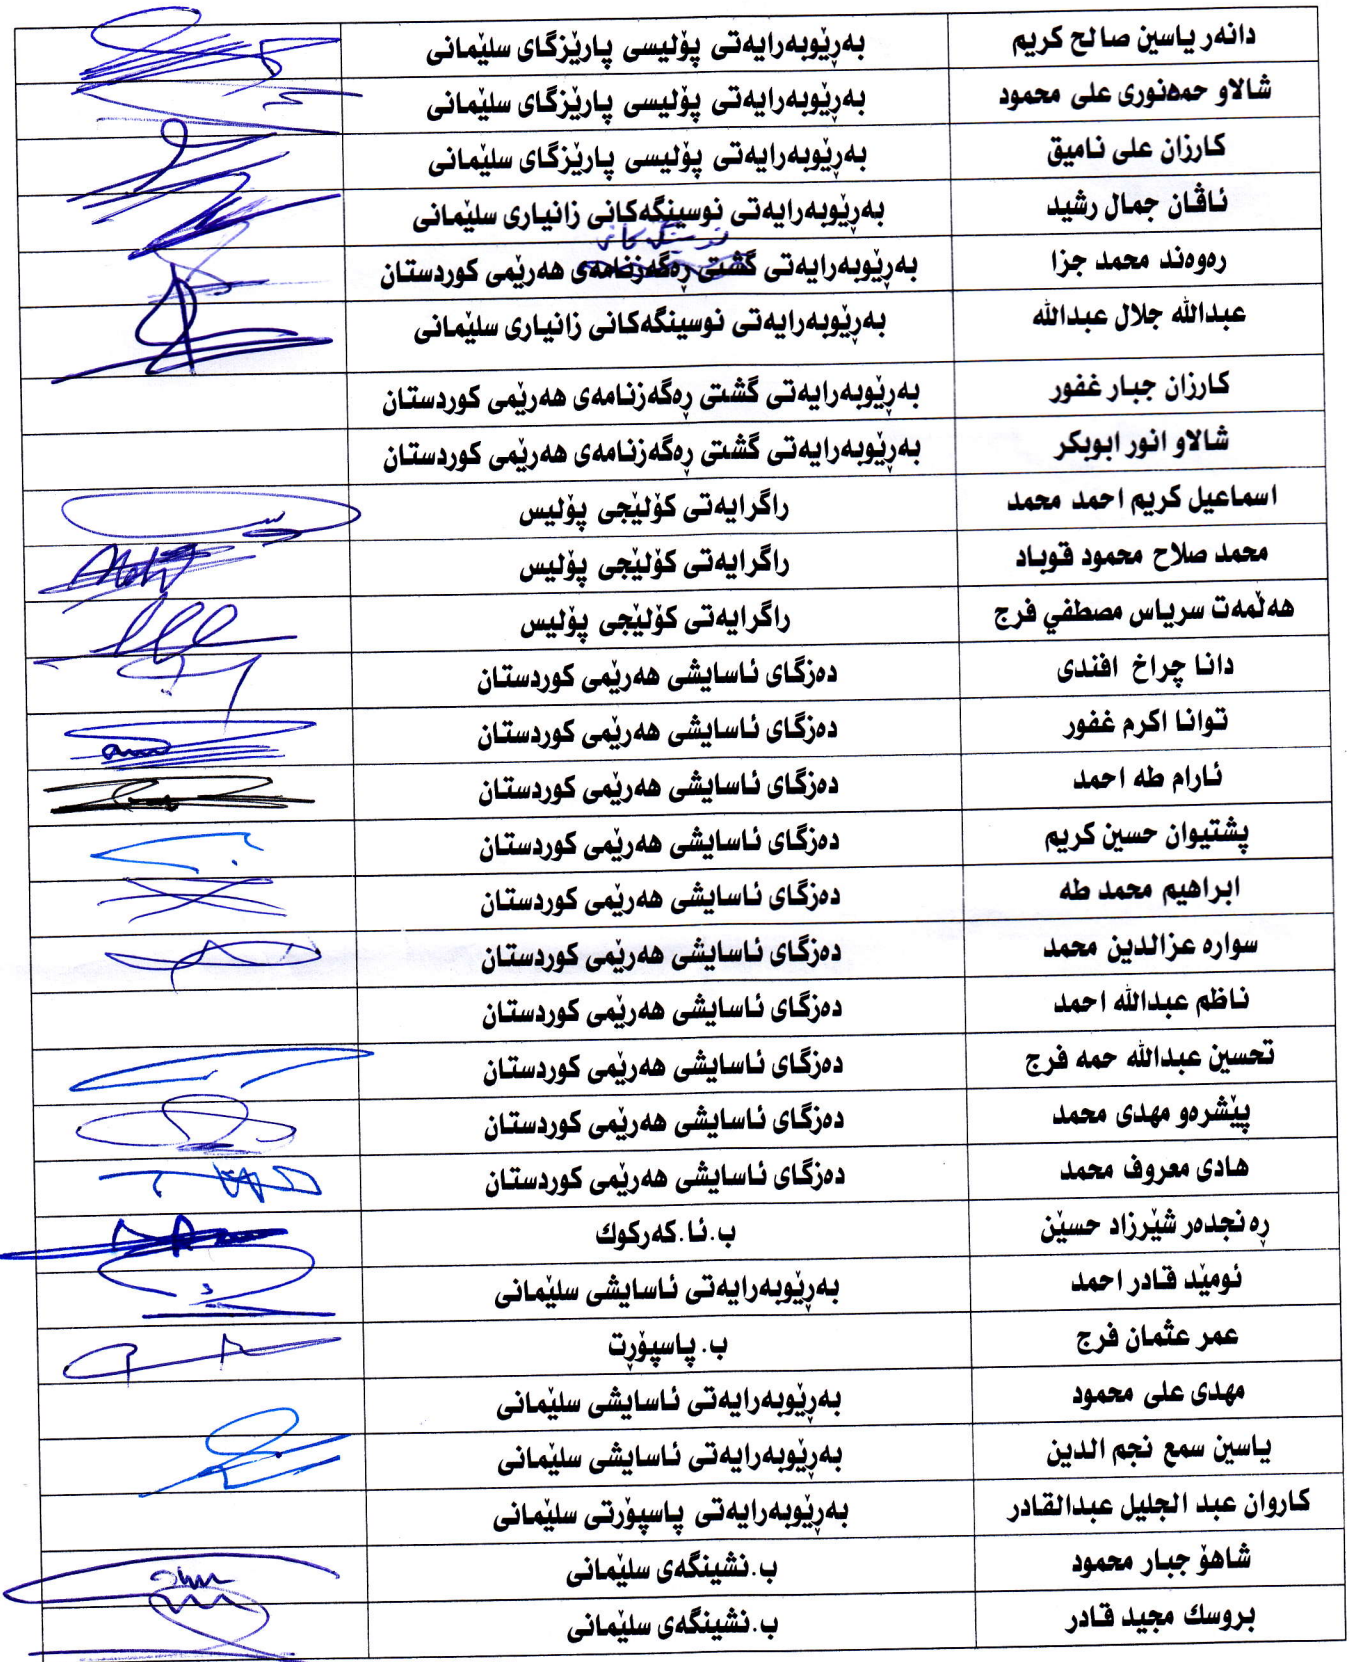 دانەر یاسین صالح کریم بەڕێوبەرایەتی پۆلیسی پارێزگای سلێمانی
شالاو حمەنوری علی محمود بەڕێوبەرایەتی پۆلیسی پارێزگای سلێمانی
کارزان علی نامیق بەڕێوبەرایەتی پۆلیسی پارێزگای سلێمانی
ئاڤان جمال رشید بەڕێوبەرایەتی نوسینگەکانی زانیاری سلێمانی
نوسینگەکانی
رەوەند محمد جزا بەڕێوبەرایەتی گشتی ڕەگەزنامەی هەرێمی کوردستان
عبدالله جلال عبدالله بەڕێوبەرایەتی نوسینگەکانی زانیاری سلێمانی
کارزان جبار غفور بەڕێوبەرایەتی گشتی ڕەگەزنامەی هەرێمی کوردستان
شالاو انور ابوبکر بەڕێوبەرایەتی گشتی ڕەگەزنامەی هەرێمی کوردستان
اسماعیل کریم احمد محمد راگرایەتی کۆلێجی پۆلیس
محمد صلاح محمود قوباد راگرایەتی کۆلێجی پۆلیس
هەڵمەت سریاس مصطفي فرج راگرایەتی کۆلێجی پۆلیس
دانا چراخ افندی دەزگای ئاسایشی هەرێمی کوردستان
توانا اکرم غفور دەزگای ئاسایشی هەرێمی کوردستان
ئارام طه احمد دەزگای ئاسایشی هەرێمی کوردستان
پشتیوان حسین کریم دەزگای ئاسایشی هەرێمی کوردستان
ابراهیم محمد طه دەزگای ئاسایشی هەرێمی کوردستان
سواره عزالدین محمد دەزگای ئاسایشی هەرێمی کوردستان
ناظم عبدالله احمد دەزگای ئاسایشی هەرێمی کوردستان
تحسین عبدالله حمه فرج دەزگای ئاسایشی هەرێمی کوردستان
پێشرەو مهدی محمد دەزگای ئاسایشی هەرێمی کوردستان
هادی معروف محمد دەزگای ئاسایشی هەرێمی کوردستان
ڕەنجدەر شێرزاد حسێن ب.ئا.کەرکوك
ئومێد قادر احمد بەڕێوبەرایەتی ئاسایشی سلێمانی
عمر عثمان فرج ب. پاسپۆڕت
مهدی علی محمود بەڕێوبەرایەتی ئاسایشی سلێمانی
یاسین سمع نجم الدین بەڕێوبەرایەتی ئاسایشی سلێمانی
کاروان عبد الجلیل عبدالقادر بەڕێوبەرایەتی پاسپۆرتی سلێمانی
شاهۆ جبار محمود ب.نشینگەی سلێمانی
بروسك مجید قادر ب.نشینگەی سلێمانی